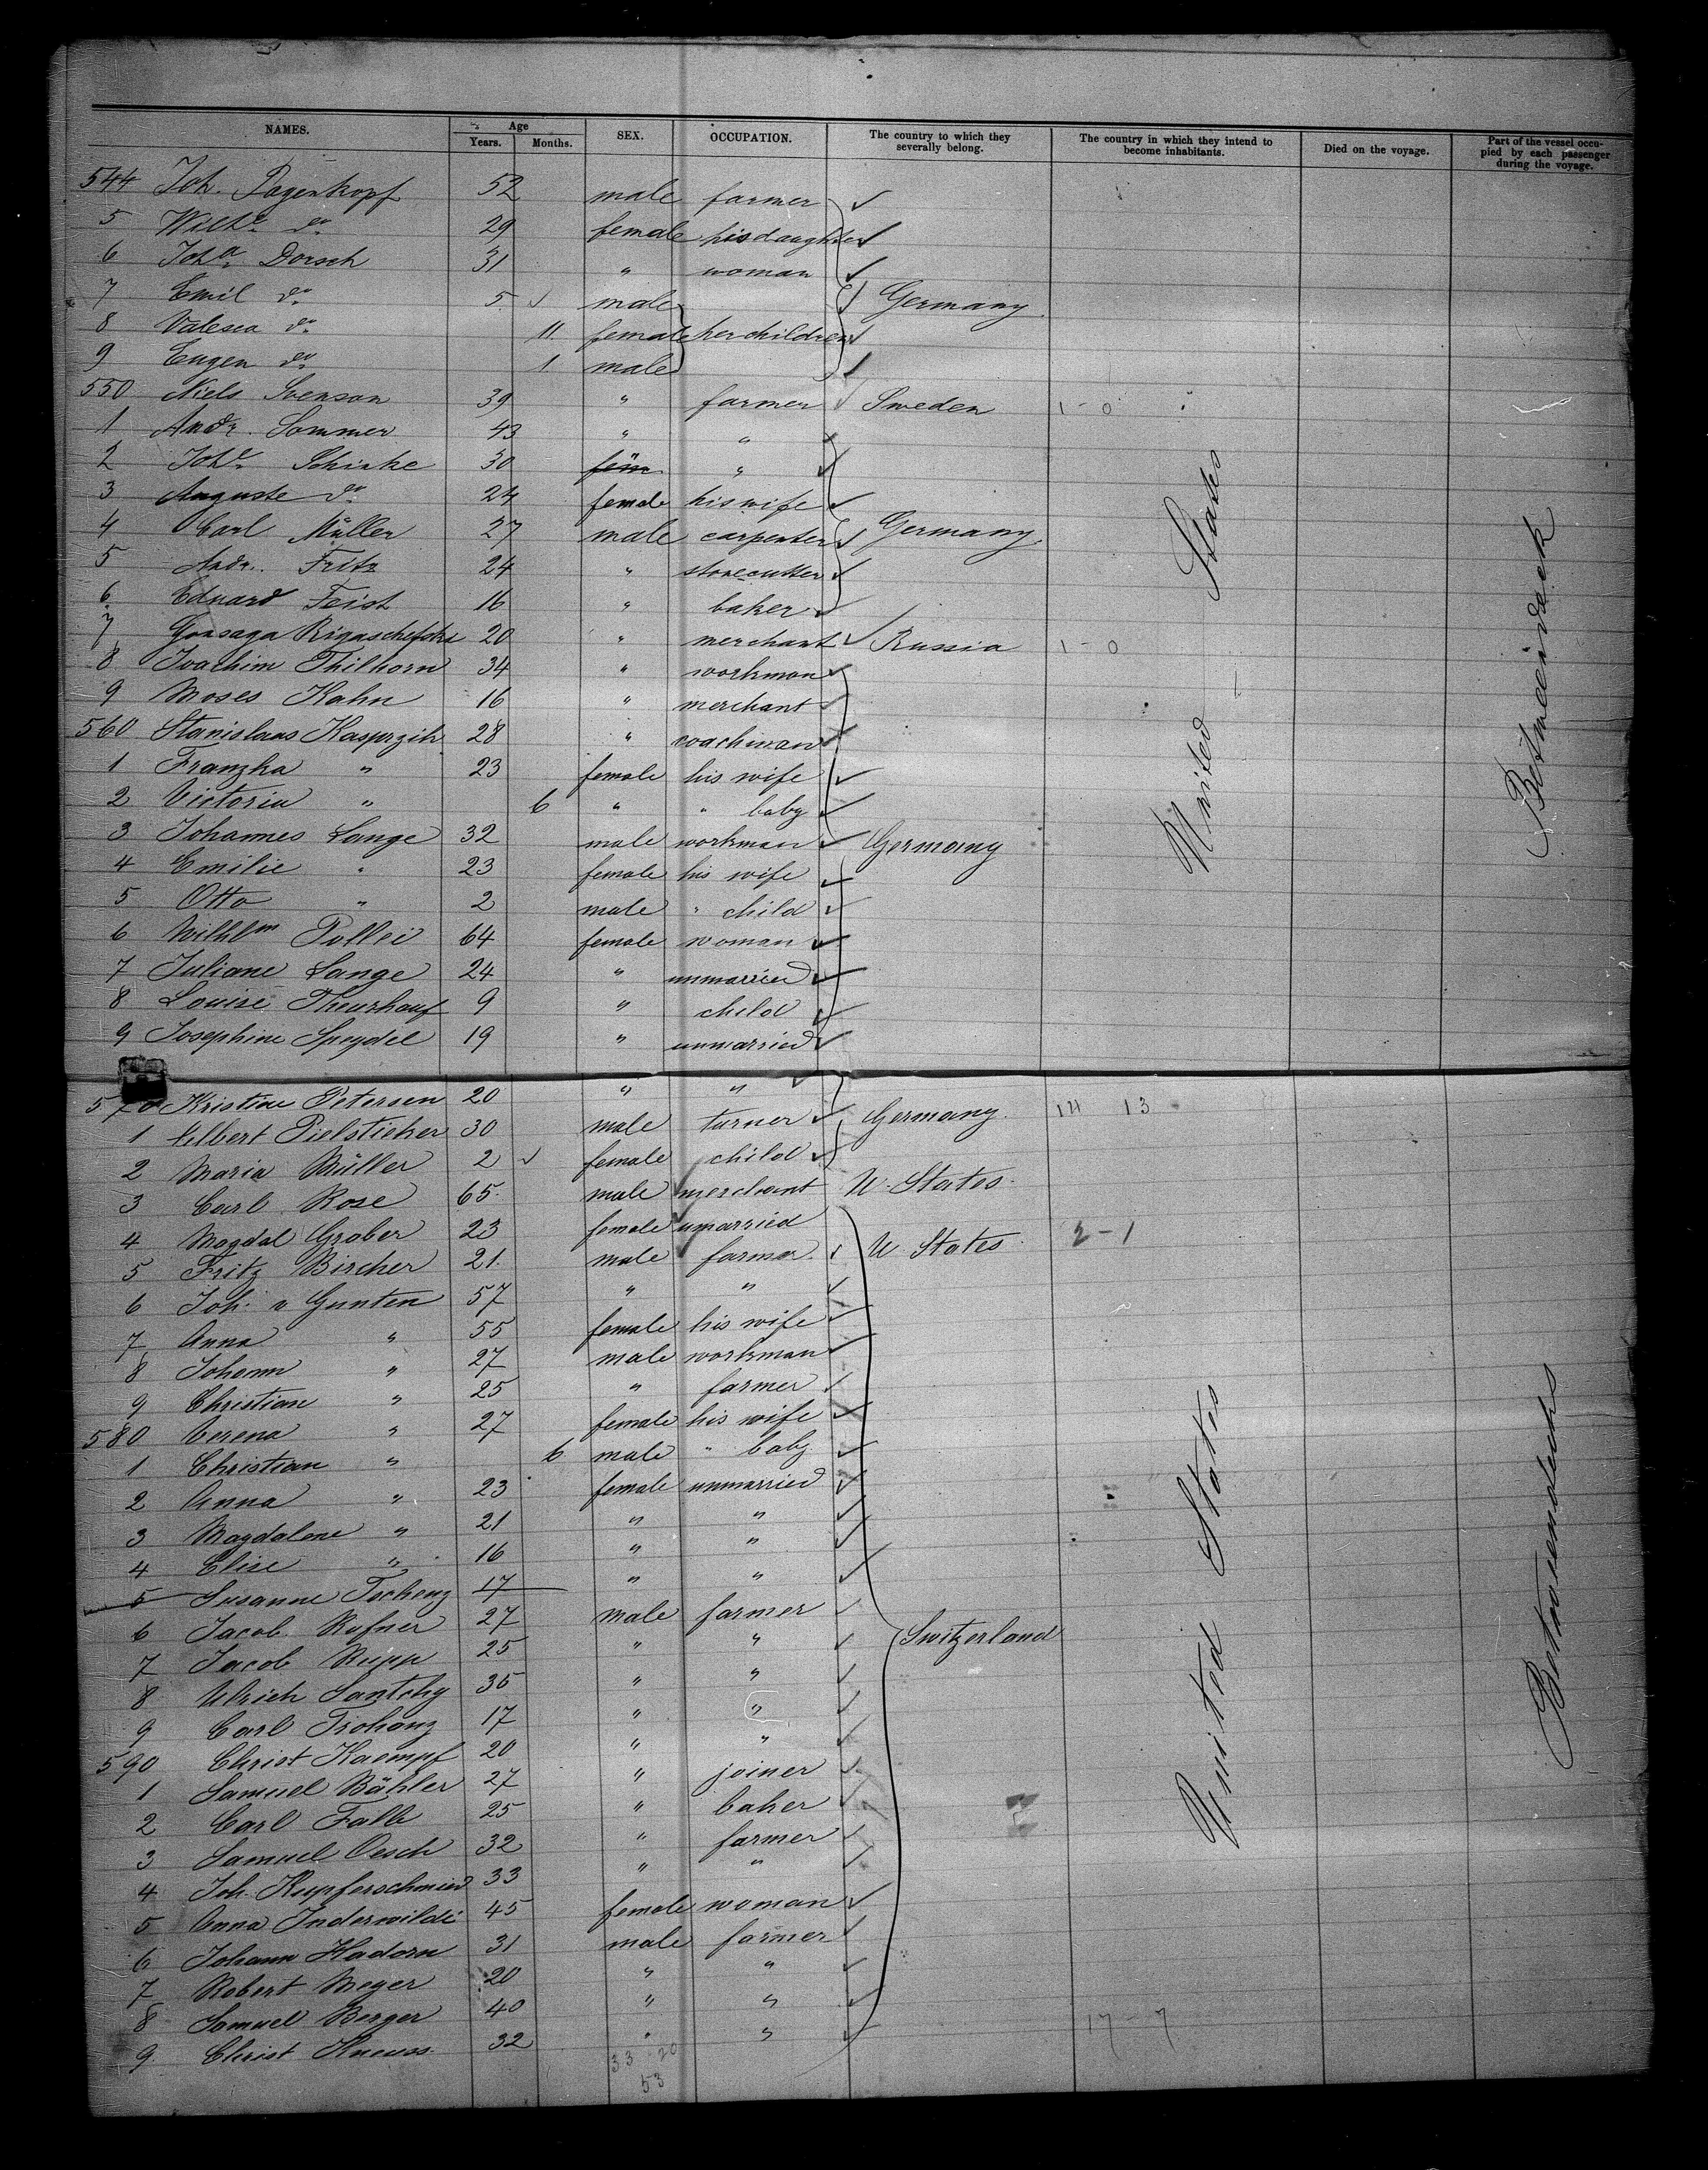 NAMES. Age Years. Months. SEX. OCCUPATION. The country to which they severally belong. The country in which they intend to become inhabitants. Died on the voyage. Part of the vessel occupied by each passenger during the voyage.
544 Joh. Pagenkopf 52 male farmer
5 Wilhe do 29 female his daughter
6 Joha Dorsch 31 " woman
7 Emil do 5 male
8 Valesca do 11 female her children Germany
9 Eugen do 1 male
550 Niels Svenson 39 " farmer Sweden 1-0
1 Andr. Sommer 43 " "
2 Johs Schinke 30 "
3 Auguste do 24 female his wife
4 Carl Müller 27 male carpenter Germany
5 Andr. Fritz 24 " stonecutter
6 Eduard Feist 16 " baker
7 Gonsaga 20 " merchant Russia 1-0
8 Joachim Thilhorn 34 " workman
9 Moses Kahn 16 " merchant
560 Stanislaus Kasprzik 28 " coachman
1 Franzka " 23 female his wife
2 Victoria " 6 " " baby
3 Johannes Lange 32 male workman Germany
4 Emilie " 23 female his wife
5 Otto " 2 male " child
6 Wilhlm Pollei 64 female woman
7 Juliane Lange 24 " unmarried
8 Louise Theurkauf 9 " child
9 Josephine Speydel 19 " unmarried
United States
Betweendeck
570 Kristine Petersen 20 " "
1 Elbert Pielsticker 30 male turner Germany 14 13
2 Maria Müller 2 female child
3 Carl Rose 65 male merchant U. States
4 Magdal Graber 23 female unmarried
5 Fritz Bircher 21 male farmer U. States 2-1
6 Joh. v Gunten 57 " "
7 Anna " 55 female his wife
8 Johann " 27 male workman
9 Christian " 25 " farmer
580 Verena " 27 female his wife
1 Christian " 6 male " baby
2 Anna " 23 female unmarried
3 Magdalene " 21 " "
4 Elise " 16 " "
5 Susanne Tschenz 17 " "
6 Jacob Rufner 27 male farmer
7 Jacob Rupp 25 " " Switzerland
8 Ulrich Santchy 35 " "
9 Carl Tschanz 17 " "
590 Christ Kaempf 20 " "
1 Samuel Bähler 27 " joiner
2 Carl Falb 25 " baker
3 Samuel Oesch 32 " farmer
4 Joh. Kupferschmied 33 " "
5 Anna Inderwildi 45 female woman
6 Johann Hadorn 31 male farmer
7 Robert Meyer 20 " "
8 Samuel Berger 40 " "
9 Christ Kneuss 32 " " 17-7
33 20
53
United States
Betweendecks